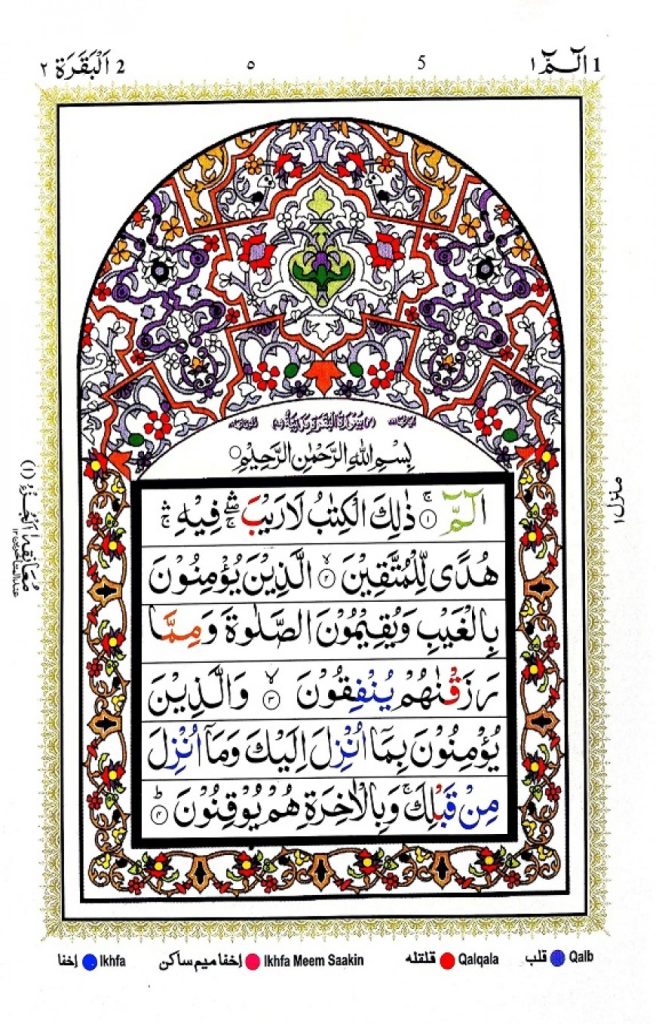 1 الٓـمّٓ ١
5
٥
2 اَلْبَقَرَة ٢
بِسْمِ اللّٰهِ الرَّحْمٰنِ الرَّحِيْمِ
الٓمّٓ ۚ ١ ذٰلِكَ الْكِتٰبُ لَا رَيْبَ ۛۖۚ فِيْهِ ۛۚ
هُدًى لِّلْمُتَّقِيْنَ ۙ ٢ الَّذِيْنَ يُؤْمِنُوْنَ
بِالْغَيْبِ وَيُقِيْمُوْنَ الصَّلٰوةَ وَمِمَّا
رَزَقْنٰهُمْ يُنْفِقُوْنَ ۙ ٣ وَالَّذِيْنَ
يُؤْمِنُوْنَ بِمَآ اُنْزِلَ اِلَيْكَ وَمَآ اُنْزِلَ
مِنْ قَبْلِكَ ۚ وَبِالْاٰخِرَةِ هُمْ يُوْقِنُوْنَ ؕ ٤
منزل ١
مُعَانَقَه اَلْجُزْءُ (١)
اِخفا Ikhfa
اِخفا میم ساکن Ikhfa Meem Saakin
قلقله Qalqala
قلب Qalb